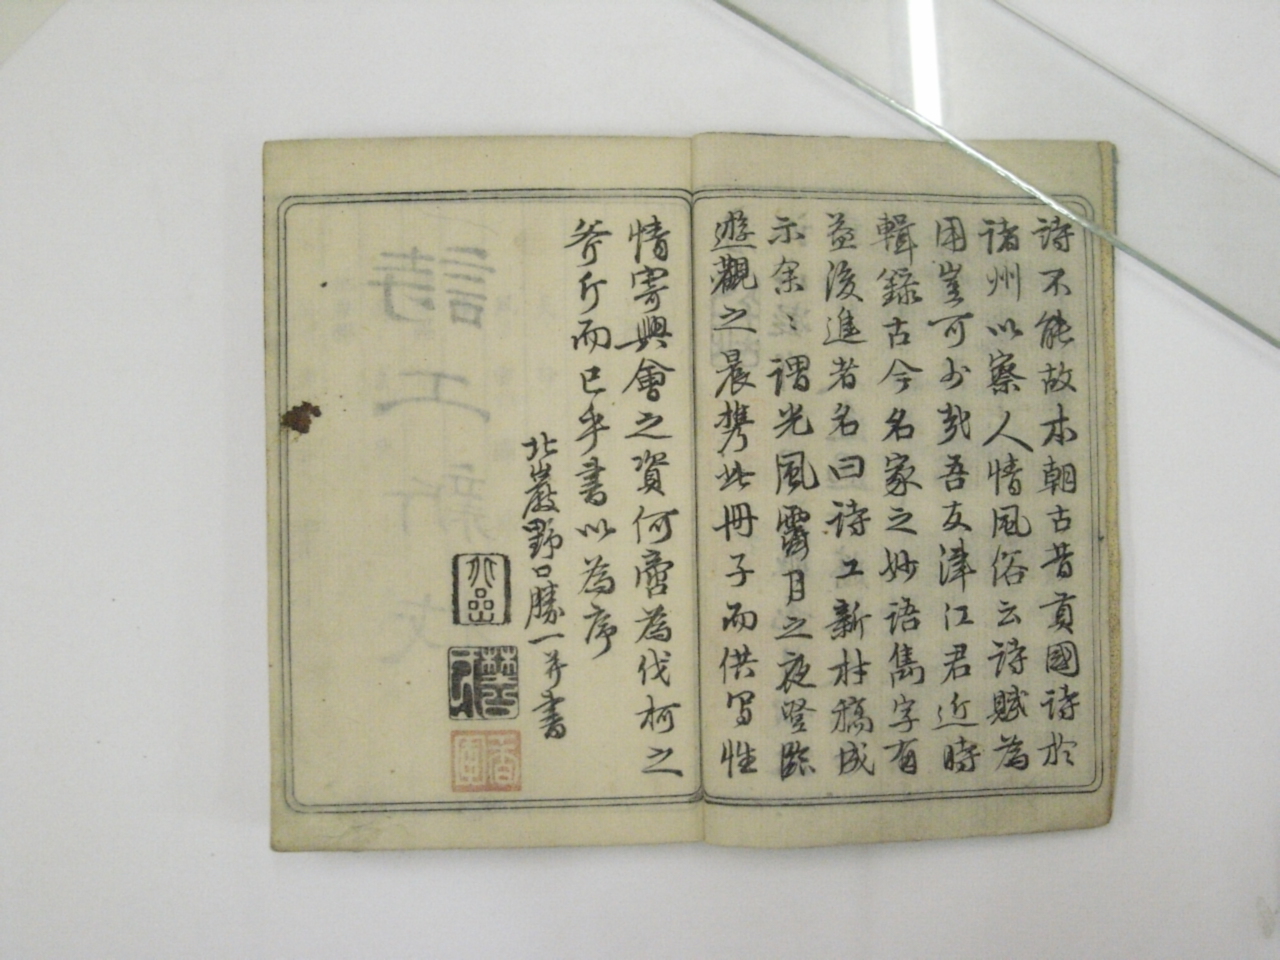 詩不能故本朝古昔貢國詩於
諸州以察人情風俗云詩賦為
用豈可少哉吾友津江君近時
輯録古今名家之妙語雋字有
益後進者名曰詩工新材稿成
示余〻謂光風霽月之夜登臨
遊觀之晨携此冊子而供写性
情寄興會之資何啻為伐柯之
斧斤而已乎書以為序
北巖野口勝一并書
香